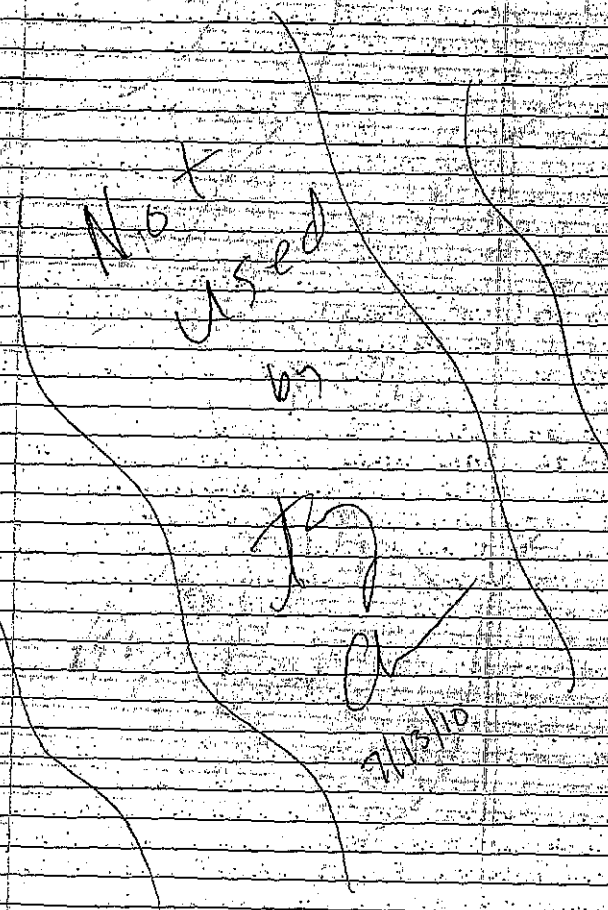 Not
used
by
7/13/10